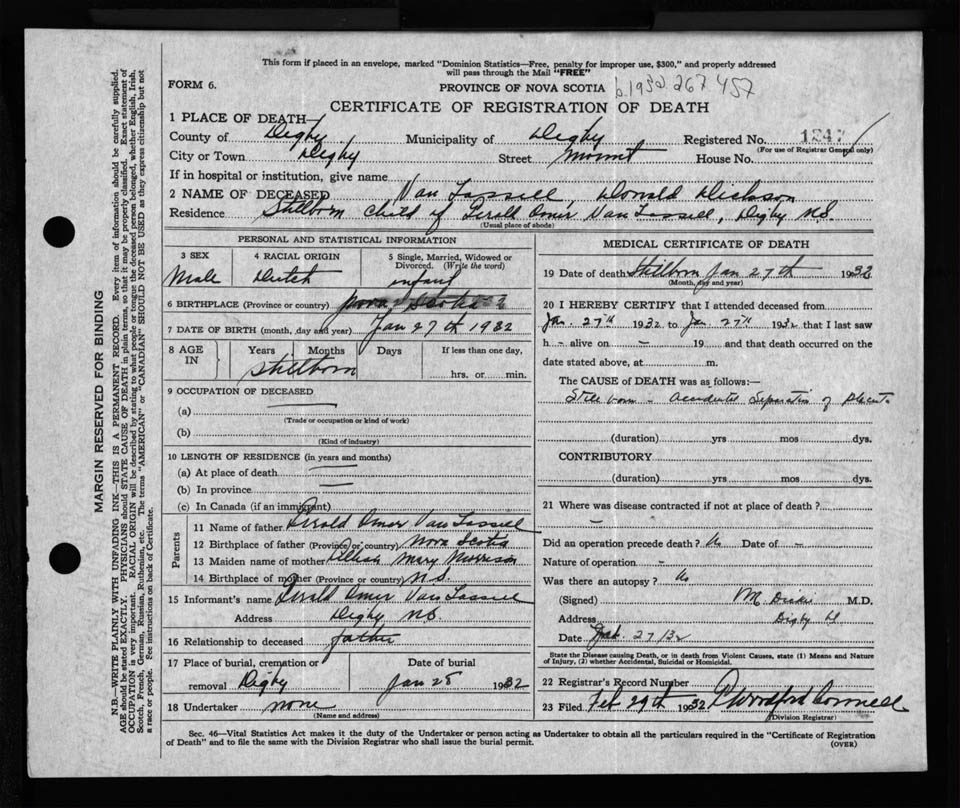 This form if placed in an envelope, marked "Dominion Statistics—Free, penalty for improper use, $300," and properly addressed
will pass through the Mail "FREE"
FORM 6.
PROVINCE OF NOVA SCOTIA
b.1932 267 457
CERTIFICATE OF REGISTRATION OF DEATH
1 PLACE OF DEATH—
County of Digby Municipality of Digby Registered No. 1247
(For use of Registrar General only)
City or Town Digby Street Mount House No.
If in hospital or institution, give name
2 NAME OF DECEASED Van Tassell, Donald Dickson
Residence Stillborn child of Gerald Omer Van Tassell, Digby N.S.
(Usual place of abode)
PERSONAL AND STATISTICAL INFORMATION
3 SEX 4 RACIAL ORIGIN 5 Single, Married, Widowed or
Divorced. (Write the word)
Male Dutch infant
6 BIRTHPLACE (Province or country) Nova Scotia
7 DATE OF BIRTH (month, day and year) Jan 27th 1932
8 AGE IN Years Months Days If less than one day,
Stillborn hrs. or min.
9 OCCUPATION OF DECEASED
(a)
(Trade or occupation or kind of work)
(b)
(Kind of industry)
10 LENGTH OF RESIDENCE (in years and months)
(a) At place of death
(b) In province
(c) In Canada (if an immigrant)
Parents
11 Name of father Gerald Omer Van Tassell
12 Birthplace of father (Province or country) Nova Scotia
13 Maiden name of mother Mary Morrison
14 Birthplace of mother (Province or country) N.S.
15 Informant's name Gerald Omer Van Tassell
Address Digby N.S.
16 Relationship to deceased father
17 Place of burial, cremation or Date of burial
removal Digby Jan 28 1932
18 Undertaker none
(Name and address)
MEDICAL CERTIFICATE OF DEATH
19 Date of death Stillborn Jan 27th 1932
(Month, day and year)
20 I HEREBY CERTIFY that I attended deceased from
Jan. 27th 1932 to Jan. 27th 1932 that I last saw
h — alive on — 19 and that death occurred on the
date stated above, at m.
The CAUSE of DEATH was as follows:—
Still born - accidental Separation of Placenta
(duration) yrs mos dys.
CONTRIBUTORY
(duration) yrs mos dys.
21 Where was disease contracted if not at place of death?
—
Did an operation precede death? No Date of -
Nature of operation -
Was there an autopsy? No
(Signed) M.D.
Address Digby
Date Jan. 27/32
State the Disease causing Death, or in death from Violent Causes, state (1) Means and Nature
of Injury, (2) whether Accidental, Suicidal or Homicidal.
22 Registrar's Record Number
23 Filed Feb 29th 1932
(Division Registrar)
Sec. 46—Vital Statistics Act makes it the duty of the Undertaker or person acting as Undertaker to obtain all the particulars required in the "Certificate of Registration
of Death" and to file the same with the Division Registrar who shall issue the burial permit.
(OVER)
MARGIN RESERVED FOR BINDING
N.B.—WRITE PLAINLY WITH UNFADING INK—THIS IS A PERMANENT RECORD. Every item of information should be carefully supplied.
AGE should be stated EXACTLY. PHYSICIANS should STATE CAUSE OF DEATH in plain terms, so that it may be properly classified. Exact statement of
OCCUPATION is very important. RACIAL ORIGIN will be described by stating to what people or tongue the deceased person belonged, whether English, Irish,
Scotch, French, German, Russian, Ruthenian, etc. The terms "AMERICAN" or "CANADIAN" SHOULD NOT BE USED as they express citizenship but not
a race or people. See instructions on back of Certificate.